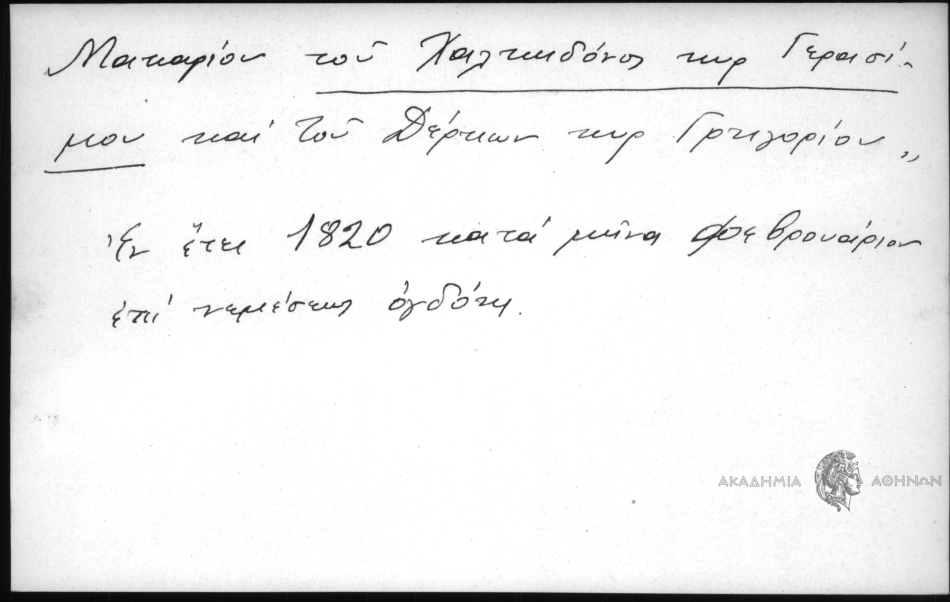 Μακαρίου τοῦ Χαλκηδόνος κυρ Γερασί-
μου καί τοῦ Δέρκων κυρ Γρηγορίου„
Ἐν ἔτει 1820 κατά μῆνα Φεβρουάριον
ἐπί νεμέσεως ὀγδόης.
ΑΚΑΔΗΜΙΑ ΑΘΗΝΩΝ